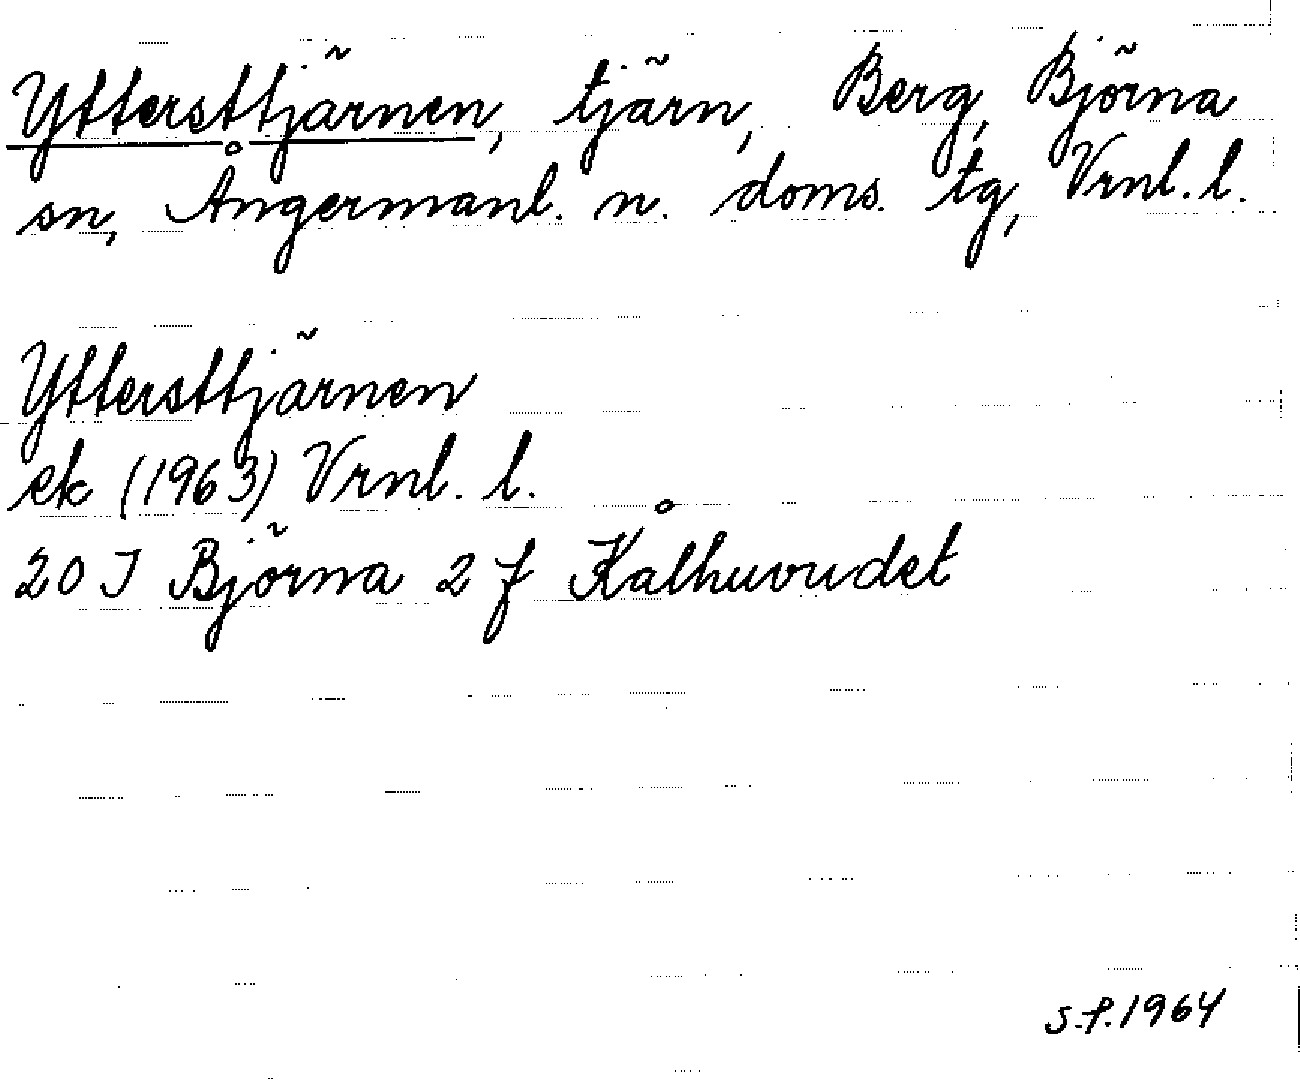 Yttersttjärnen, tjärn, Berg, Björna
sn, Ångermanl. n. doms. tg, Vrnl. l.
Yttersttjärnen
ek (1963) Vrnl. l.
20 I Björna 2 f Kålhuvudet
S.P. 1964